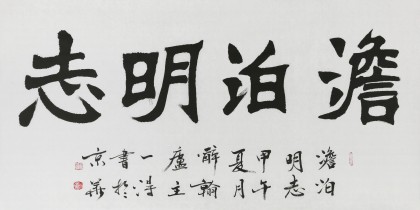 澹泊明志
澹泊
明志
甲午
夏月
醉翰
廬主
一得
書於
京華